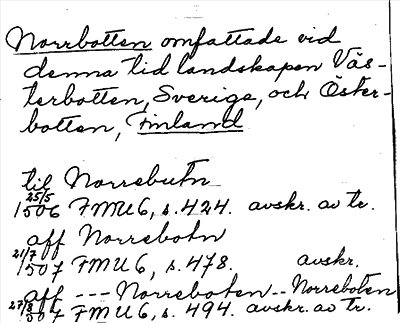 Norrbotten omfattade vid
denna tid landskapen Väs-
terbotten, Sverige, och Öster-
botten, Finland
til Norrebutn
25/5
1506 FMU 6, s. 424. avskr. av tr.
aff Norrebotn
21/7
1507 FMU 6, s. 478. avskr.
aff --- Norreboten -- Norreboten
27/8
1507 FMU 6, s. 494. avskr. av tr.